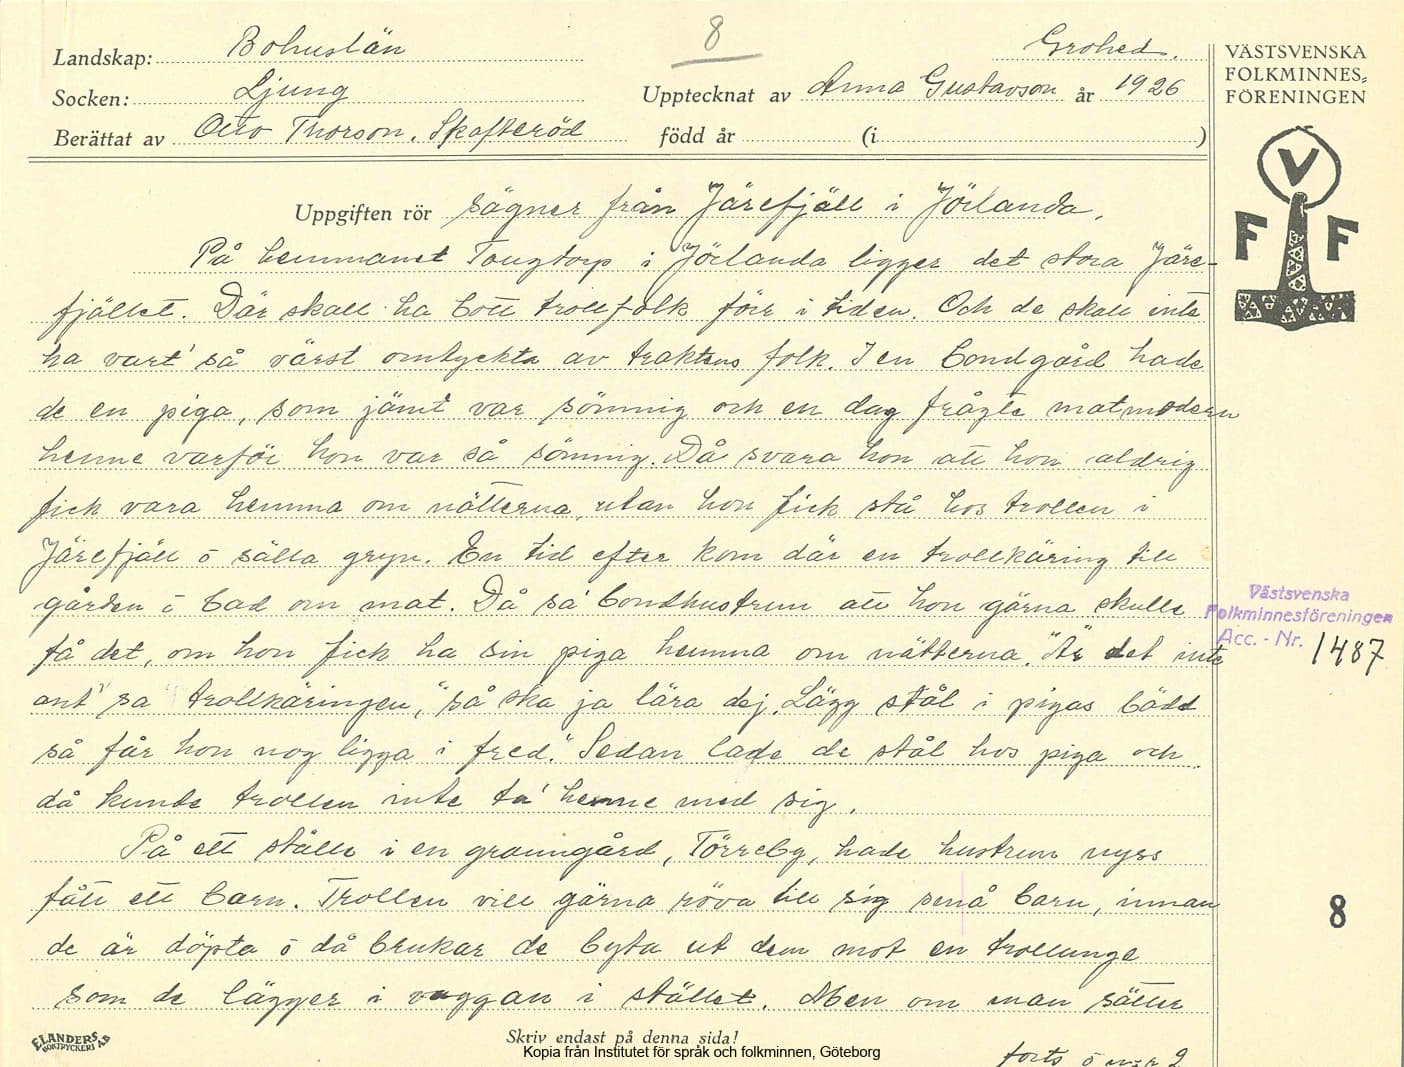 8
Grohed.
Landskap: Bohuslän
Socken: Ljung
Upptecknat av Anna Gustavson år 1926
Berättat av Otto Thorson, Skafteröd
född år (i )
VÄSTSVENSKA
FOLKMINNES=
FÖRENINGEN
V
F F
Uppgiften rör sägner från Järefjäll i Jörlanda.
På hemmanet Tougtorp i Jörlanda ligger det stora Järe-
fjället. Där skall ha bott trollfolk förr i tiden. Och de skall inte
ha vart' så värst omtyckta av traktens folk. I en bondgård hade
de en piga, som jämt var sömnig och en dag frågte matmodern
henne varför hon var så sömnig. Då svara hon att hon aldrig
fick vara hemma om nätterna, utan hon fick stå hos trollen i
Järefjäll ö sälla gryn. En tid efter kom där en trollkäring till
gården ö bad om mat. Då sa' bondhustrun att hon gärna skulle
få det, om hon fick ha sin piga hemma om nätterna. "Är det inte
ant" sa trollkäringen, "så ska ja lära dej. Lägg stål i pigas bädd
så får hon nog ligga i fred." Sedan lade de stål hos piga och
då kunde trollen inte ta' henne med sig.
På ett ställe i en granngård, Törreby, hade hustrun nyss
fått ett barn. Trollen vill gärna röva till sig små barn, innan
de är döpta ö då brukar de byta ut dem mot en trollunge
som de lägger i vaggan i stället. Men om man sätter
Västsvenska
Folkminnesföreningen
Acc. - Nr. 1487
8
ELANDERS
BOKTRYCKERI A.B
Skriv endast på denna sida!
Kopia från Institutet för språk och folkminnen, Göteborg
forts